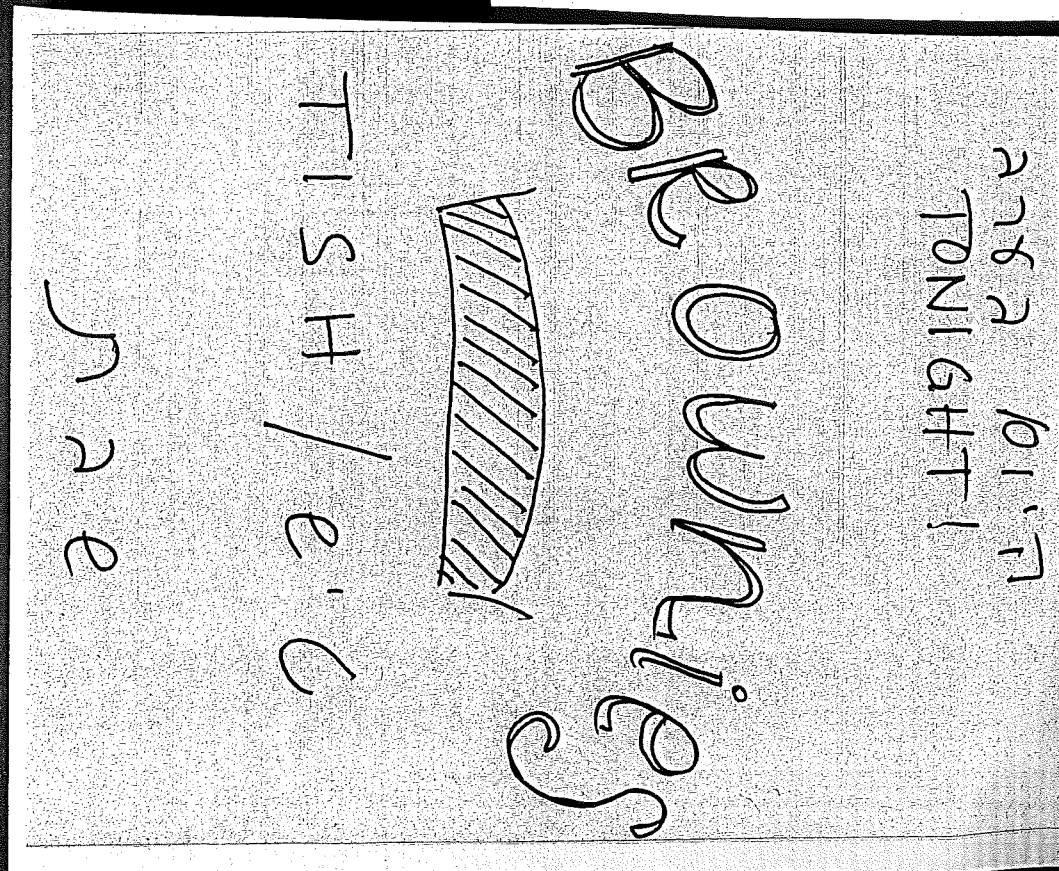 היום בערב
TONIGHT!
BROWNies
TISH / טיש
שבת